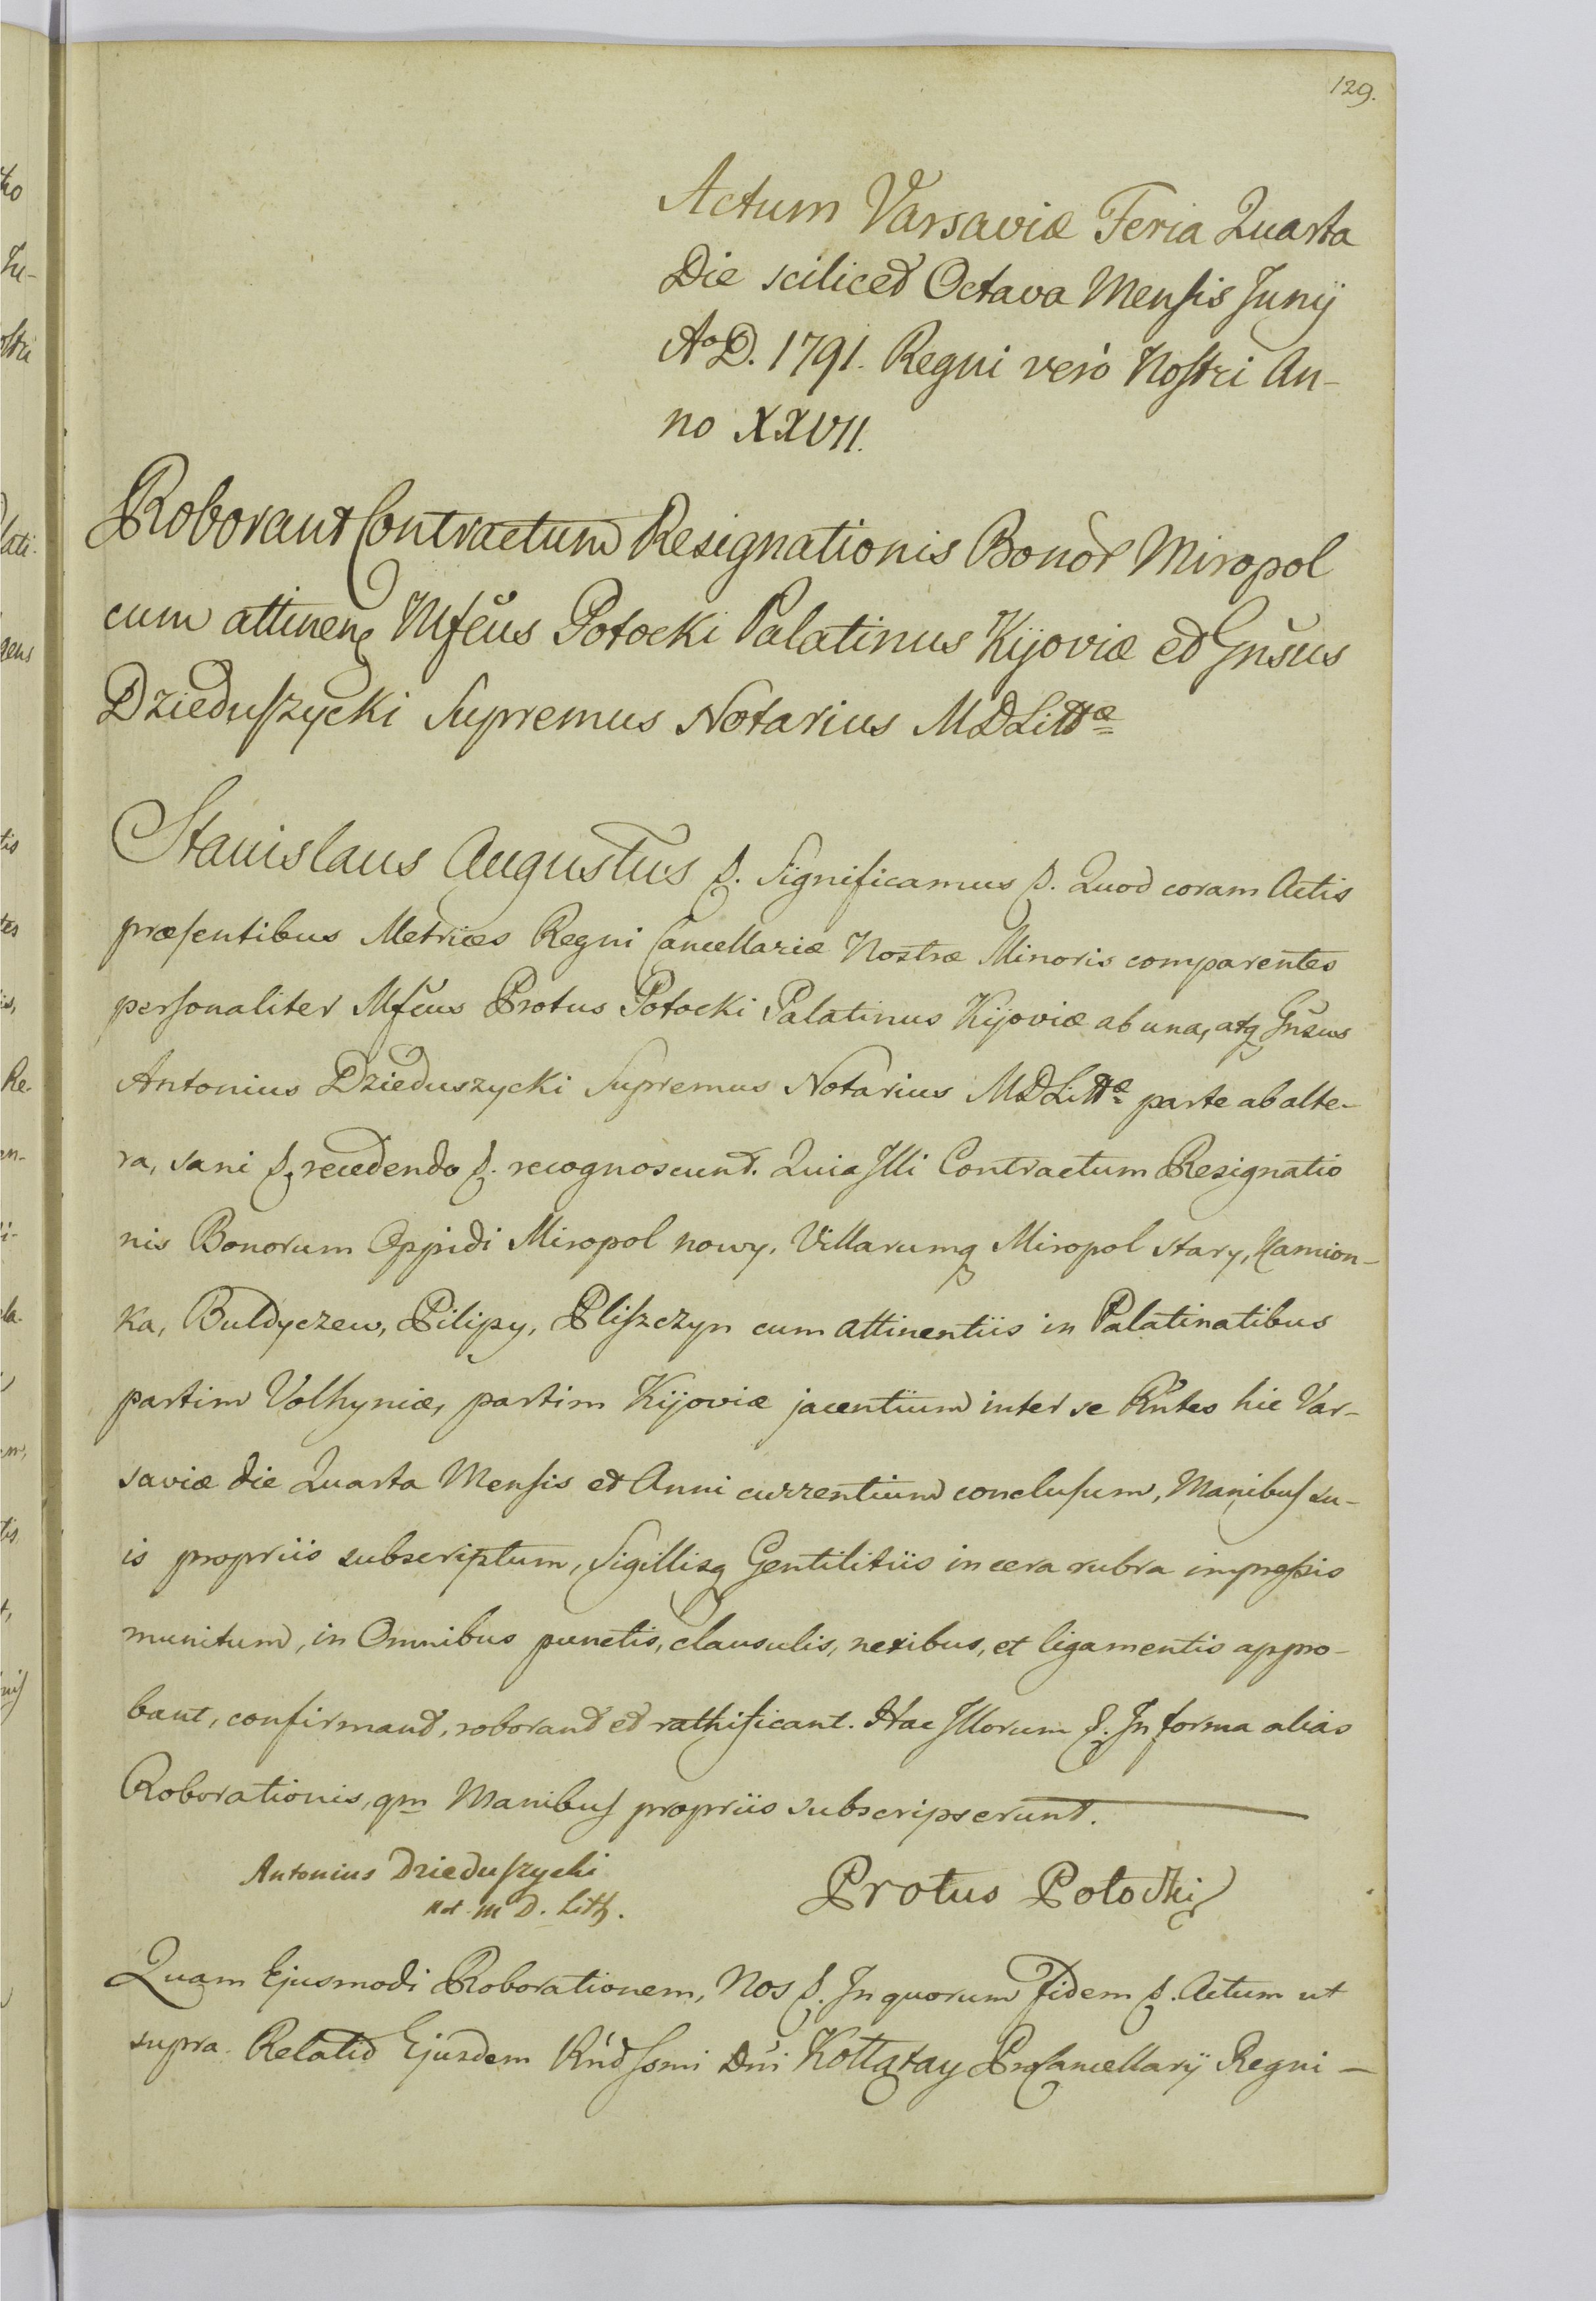 129.
Actum Varsaviæ Feria Quarta
Die scilicet Octava Mensis Junij
A° D. 1791. Regni verò Nostri An-
no XXVII.
Roborant Contractum Resignationis Bonor Miropol
cum attinen Mfcus Potocki Palatinus Kijoviæ et Gnsus
Dzieduszycki Supremus Notarius MDLittæ
Stanislaus Augustus &. Significamus &. Quod coram Actis
præsentibus Metrices Regni Cancellariæ Nostræ Minoris comparentes
personaliter Mfcus Protus Potocki Palatinus Kijoviæ ab una, atq Gnsus
Antonius Dzieduszycki Supremus Notarius MDLittæ parte ab alte-
ra, sani & recedendo &. recognoscunt. Quia Illi Contractum Resignatio
nis Bonorum Oppidi Miropol nowy, Villarumq Miropol stary, Kamion-
ka, Buldyczew, Pilipy, Pliszczyn cum attinentiis in Palatinatibus
partim Volhyniæ, partim Kijoviæ jacentium inter se Rntes hic Var-
saviæ die Quarta Mensis et Anni currentium conclusum, Manibus su-
is propriis subscriptum, Sigillisq Gentilitiis in cera rubra impressis
munitum, in Omnibus punctis, clausulis, nexibus, et ligamentis appro-
bant, confirmant, roborant et rathificant. Hac Illorum &. In forma alias
Roborationis, qm Manibus propriis subscripserunt.
Antonius Dzieduszycki Protus Potocki
Not. M D. Lith.
Quam Ejusmodi Roborationem, Nos &. In quorum Fidem &. Actum ut
supra. Relatio Ejusdem Rndssmi Dni Kołłątay ProCancellarij Regni –